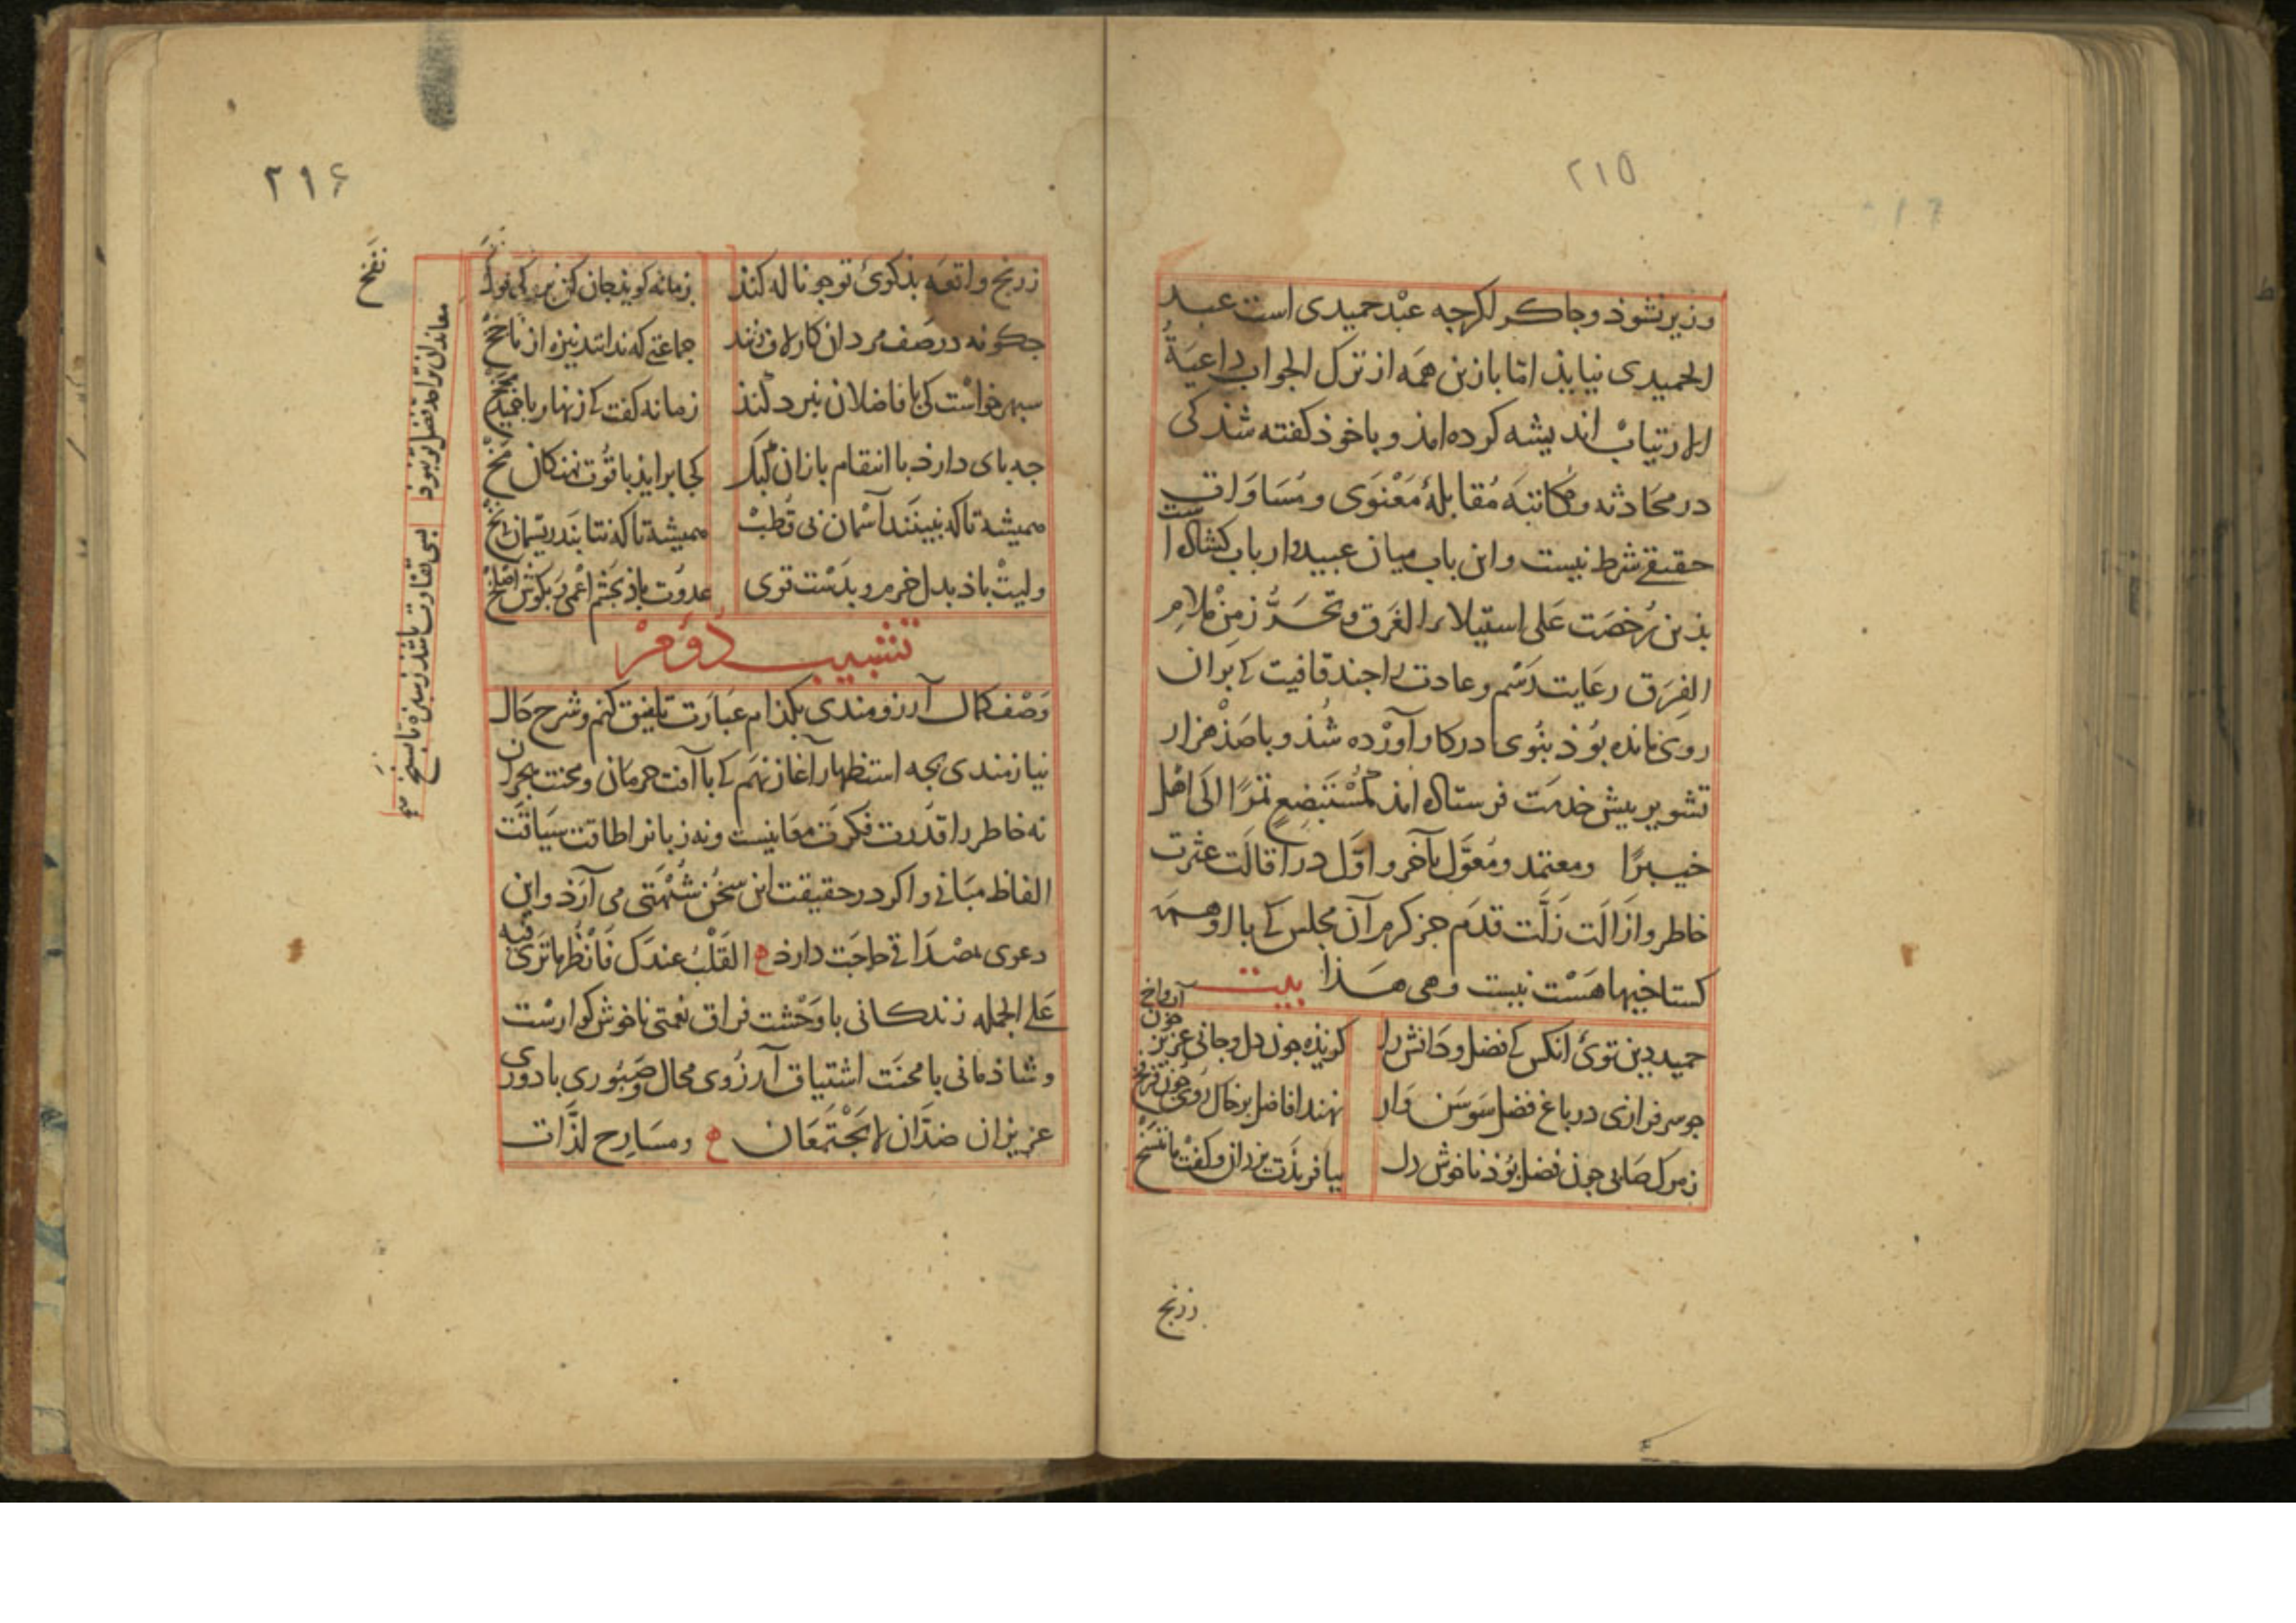 ٢١٥
وزیر نشوذ وجاکر اکرچه عبْد حمیدی است عبد
الحمیدی نیایذ امّا با زین همَه از ترک الجواب داعیَةُ
الارتیابْ اندیشه کرده امذ و با خوذ کفته شذ کی
در محَادثه و مکاتبَه مُقابلهٔ مَعْنَوَی و مُسَاوَات
حقیقے شرط نیست و این باب میان عبید و ارباب کشاده است
بذین رُخصَت عَلی استیلاء الفَرَق و تحَرُّز مِنْ ملام
الفِرَق رعَایت رَسْم و عادت را جند قافیت کے بَر آن
روی مانده بُوذ بنوی در کار آورْده شُذ و با صَذْ هزار
تشویر بیش خدمَت فرستاده امذ کمُسْتَبْضِعٍ تمرًا الَی اهْل
خیبرًا ومعتمد ومُعَوَّل بآخر و اوّل در اقالَت عثرت
خاطر و ازَالَت زَلّت قدَم جز کرم آن مجلس کے با او همه
کستاخیها هَسْت نیست وهی هَذا بیت
حمید دین توئ انکس کے فضل و دَانش را کوینده جون دل و جانی عزیز جون ارواخ
جو سر فرازی در باغ فضل سَوسَن وَار نهند افاضل بر خاک روی جون فرنخ
ز مرک صابی جون فضل بُوذ ناخوش دل بیافریذت یزدان و کفت ها تنسَخْ
زرنج
٢١۶
زرنج واقعَه بذکوئ تو جو ناله کند زمانه کویذ جان کن
جکونه در صَف مردان کار لاف زنند جماعتے که ندانند نیزه از ناخج
سبهر خواسْت کی با فاضلان نبرد کند زمانه کفت کے زنهار با حمید
جه بای دارذ با انتقام بازان کبک کجا برایذ با قُوّت نهنکان
همیشه تا که نبینَند آسْمان بی قُطبْ همیشه تا که نتابَند ریسْمان
ولیتْ باذ بدل خرم و بدَسْت قوی عدوْت باذ بجَشْم اَعْمی و بکوش اصْلخ
معاندان ترا حد فضل تو نبوذ بسی تفاوت باشذ ز سبزه تا
نفخ
تشبیب دوم
وَصْف کمال آرزومندی بکذام عبَارَت تلفیق کنم و شرح حَال
نیازمندی بجه استظهار آغاز نهَم کے با آفت حرمَان و محنت هجران
نه خاطر را قدْرت فکرَت معَانیست و نه زبانرا طاقت سیَاقَت
الفاظ مبَانے واکر در حقیقت این سخُن شُبْهَتی می آرَذ و این
دعوی بمصْدَاقے حاجَت دارذ ع القَلْبُ عندَک فَانْظُر مَا ترَی فیه
عَلے الجمله زندکانی با وَحْشت فراق نعمتی ناخوش کوارسْت
و شاذمانی با محنَت اشتیاق آرزُوی محال و صَبُوری با دوری
عزیزان ضدَّان لا یجْتَمعَان ع ومسَارِح لذّات